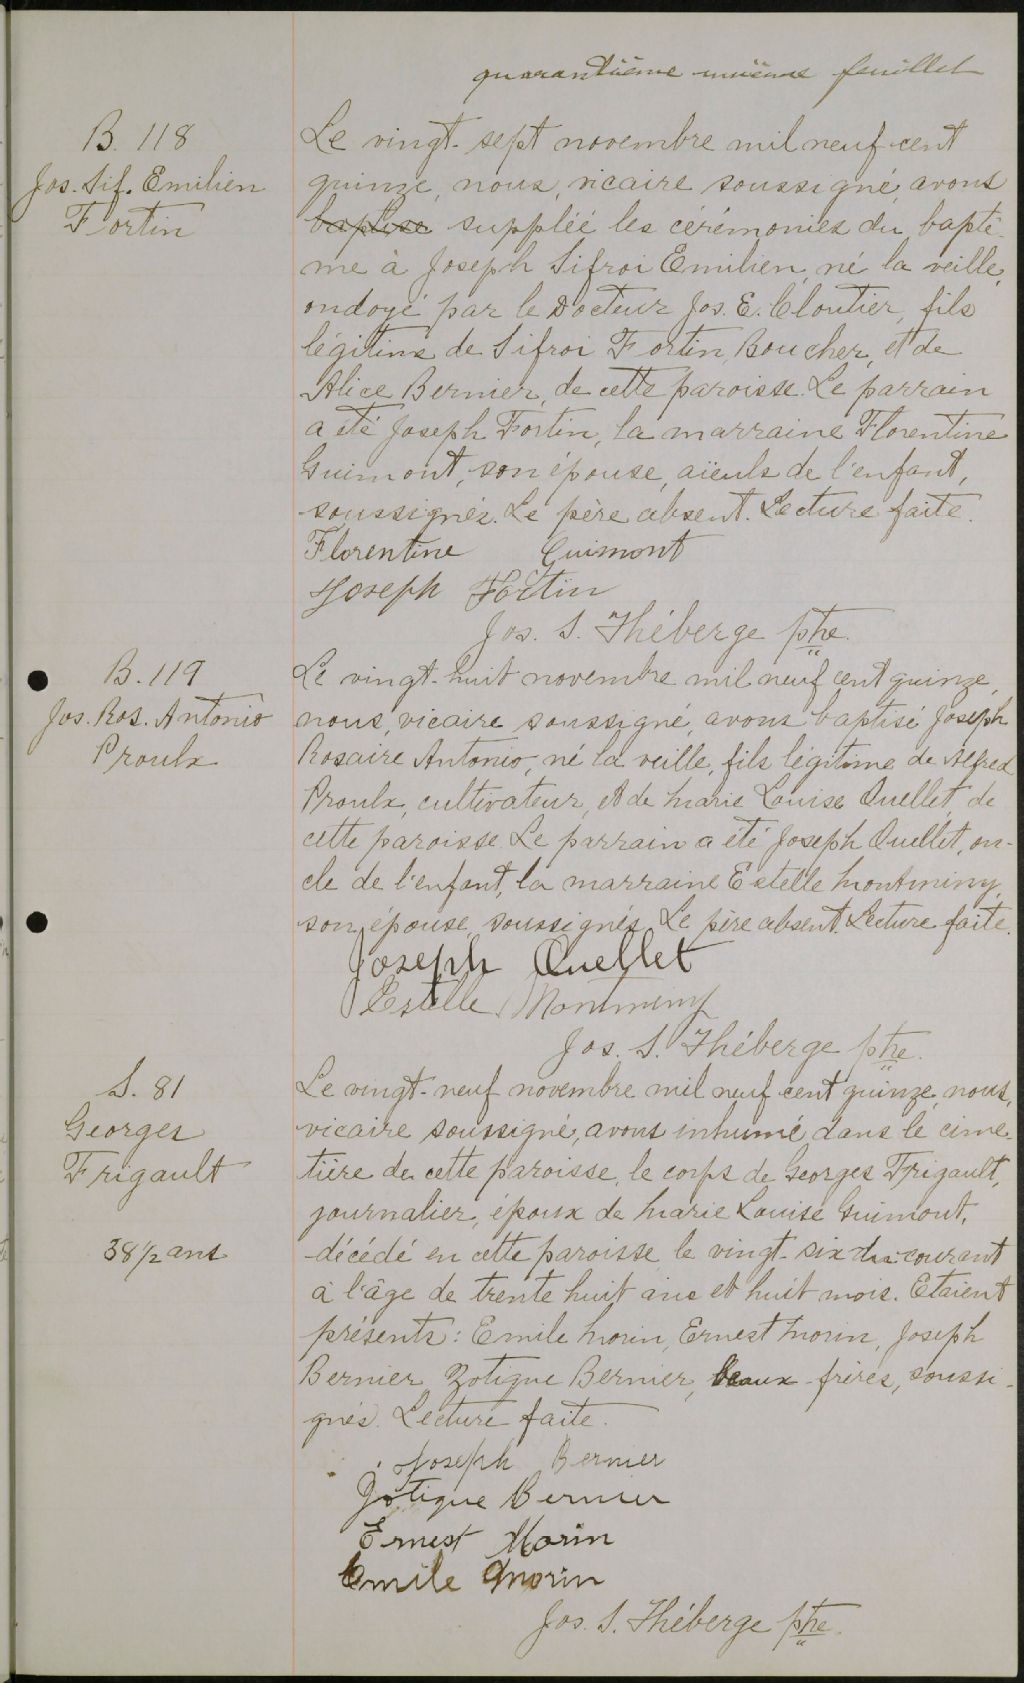 quarantième unième feuillet
B. 118
Jos. Sif. Emilien
Fortin
Le vingt-sept novembre mil neuf cent
quinze, nous, vicaire soussigné, avons
baptisé suppléé les cérémonies du baptê-
me à Joseph Sifroi Emilien, né la veille,
ondoyé par le Docteur Jos. E. Cloutier, fils
légitime de Sifroi Fortin, Boucher, et de
Alice Bernier, de cette paroisse. Le parrain
a été Joseph Fortin, la marraine Florentine
Guimont, son épouse, aïeuls de l'enfant,
soussignés. Le père absent. Lecture faite.
Florentine Guimont
Joseph Fortin
Jos. S. Théberge ptre.
B. 119
Jos. Ros. Antonio
Proulx
Le vingt-huit novembre mil neuf cent quinze,
nous, vicaire soussigné, avons baptisé Joseph
Rosaire Antonio, né la veille, fils légitime de Alfred
Proulx, cultivateur, et de Marie Louise Ouellet, de
cette paroisse. Le parrain a été Joseph Ouellet, on-
cle de l'enfant, la marraine Estelle Montminy,
son épouse, soussignés. Le père absent. Lecture faite.
Joseph Ouellet
Estelle Montminy
Jos. S. Théberge ptre.
S. 81
Georges
Frigault
38 1/2 ans
Le vingt-neuf novembre mil neuf cent quinze, nous,
vicaire soussigné, avons inhumé dans le cime-
tière de cette paroisse, le corps de Georges Frigault,
journalier, époux de Marie Louise Guimont,
décédé en cette paroisse le vingt-six du courant
à l'âge de trente huit ans et huit mois. Etaient
présents: Emile Morin, Ernest Morin, Joseph
Bernier, Zotique Bernier, beaux-frères, soussi-
gnés. Lecture faite.
Joseph Bernier
Zotique Bernier
Ernest Morin
Emile Morin
Jos. S. Théberge ptre.